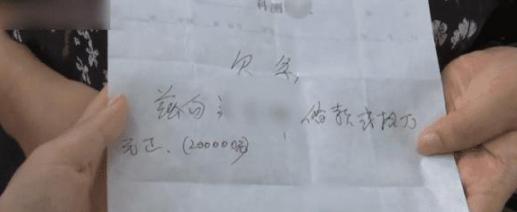 欠条,
兹向 借款贰拾万
元正、(200000元)